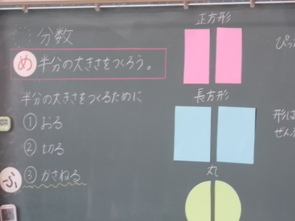 分数
め 半分の大きさをつくろう。
半分の大きさをつくるために
① おる
② 切る
③ かさねる
ふ
正方形
長方形
丸
ぴっ
形は
ぜんぶ